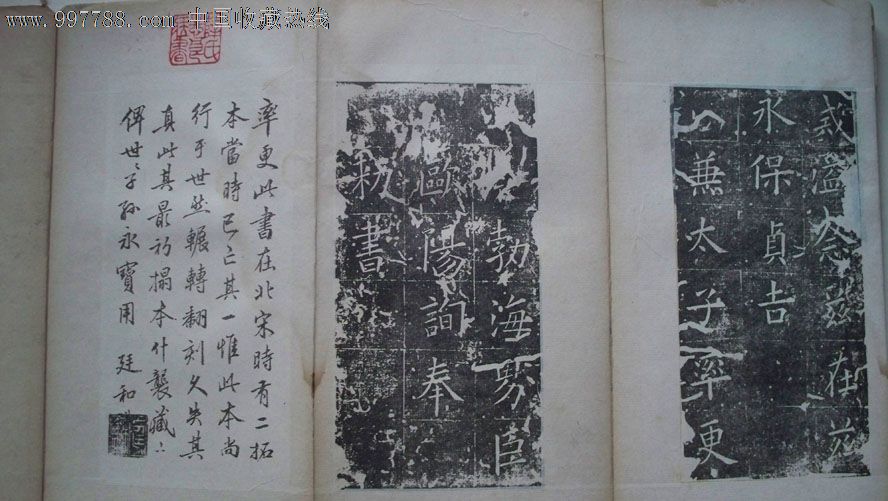 www.997788.com 中国收藏热线
戒溢念兹在兹
永保貞吉
兼太子率更
勃海男臣
歐陽詢奉
勑書
率更此書在北宋時有二拓
本當時已亡其一惟此本尚
行于世然輾轉翻刻久失其
真此其最初搨本什襲藏之
俾世々子孫永寶用 廷和